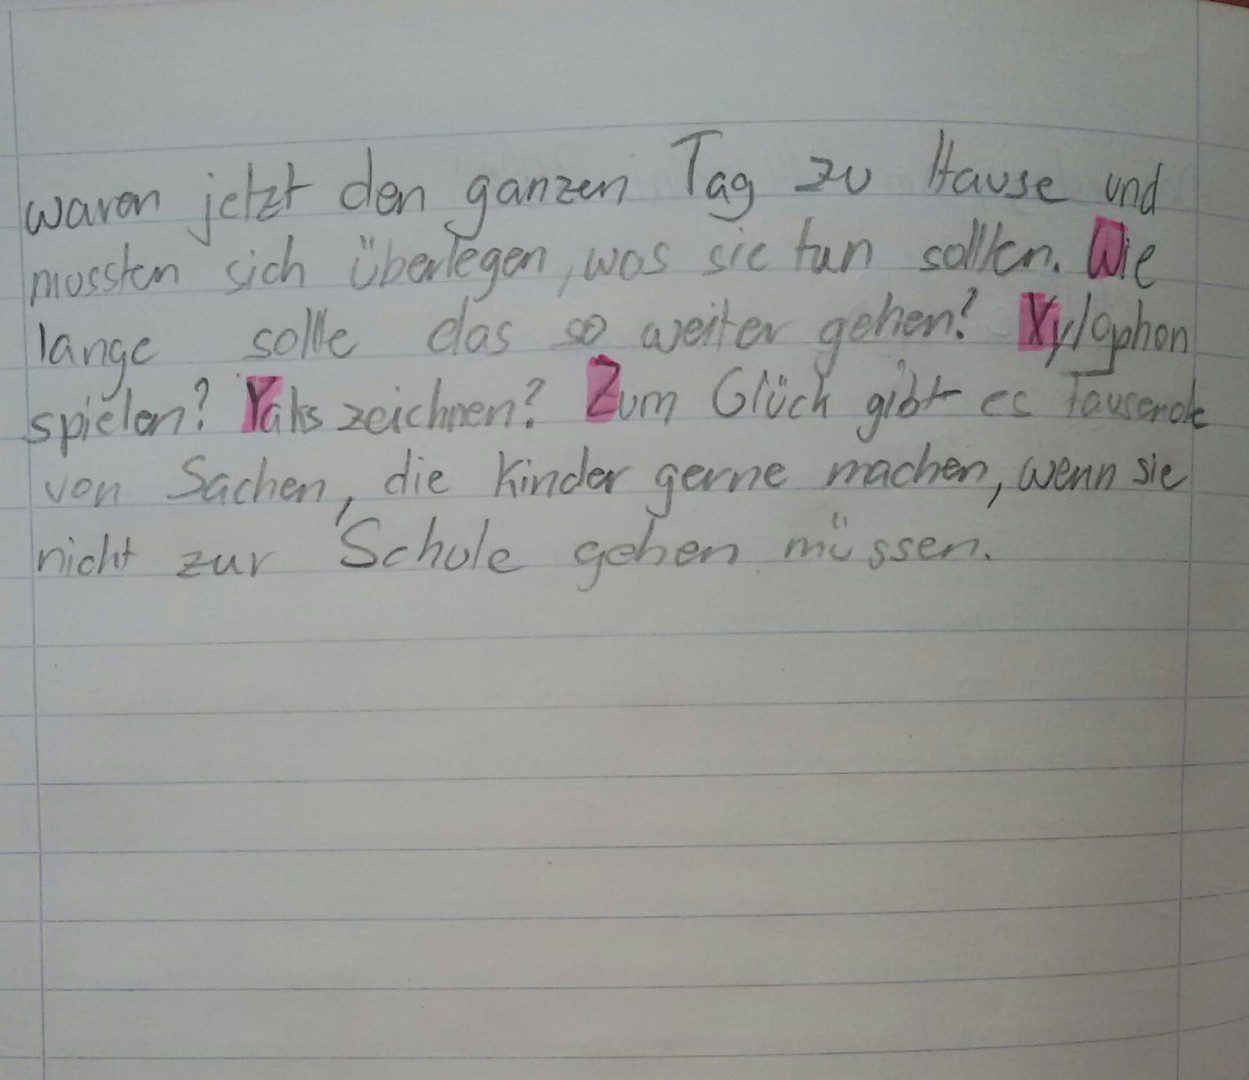 waren jetzt den ganzen Tag zu Hause und
mussten sich überlegen, was sie tun sollten. Wie
lange solle das so weiter gehen? Xylophon
spielen? Yaks zeichnen? Zum Glück gibt es Tausende
von Sachen, die Kinder gerne machen, wenn sie
nicht zur Schule gehen müssen.